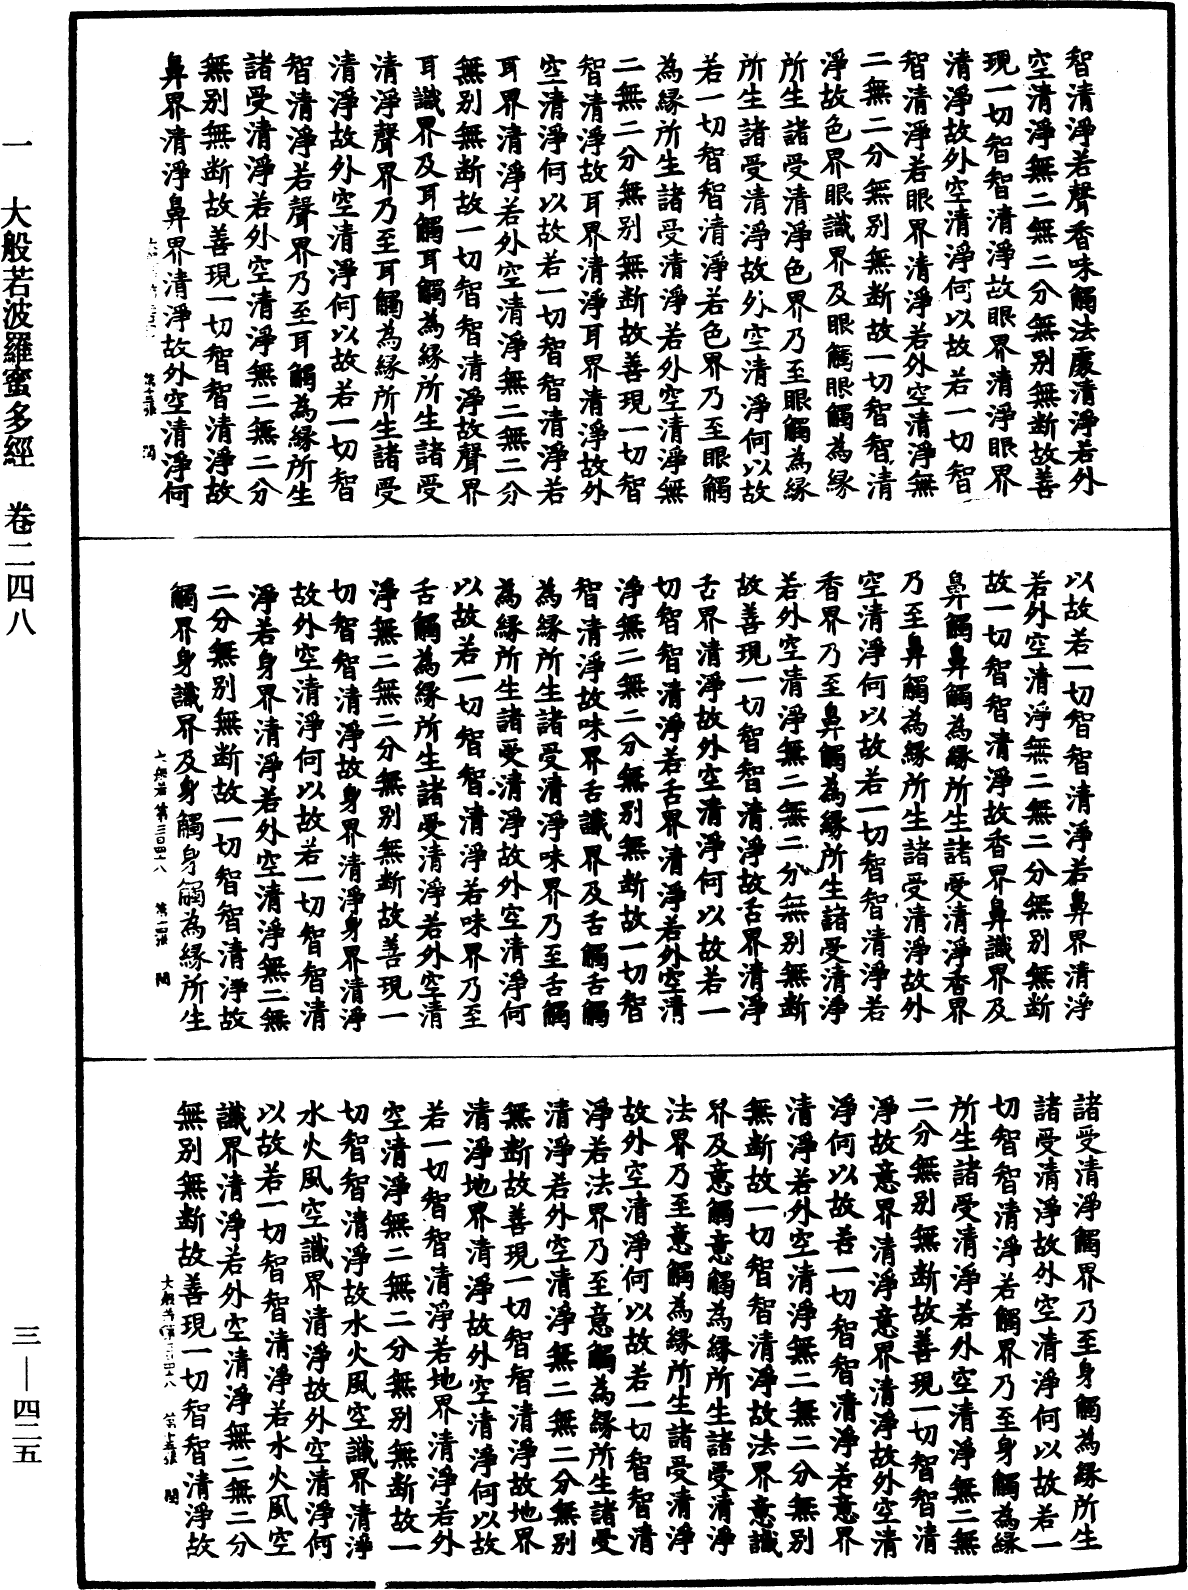 智清淨若聲香味觸法處清淨若外
空清淨無二無二分無別無斷故善
現一切智智清淨故眼界清淨眼界
清淨故外空清淨何以故若一切智
智清淨若眼界清淨若外空清淨無
二無二分無別無斷故一切智智清
淨故色界眼識界及眼觸眼觸為緣
所生諸受清淨色界乃至眼觸為緣
所生諸受清淨故外空清淨何以故
若一切智智清淨若色界乃至眼觸
為緣所生諸受清淨若外空清淨無
二無二分無別無斷故善現一切智
智清淨故耳界清淨耳界清淨故外
空清淨何以故若一切智智清淨若
耳界清淨若外空清淨無二無二分
無別無斷故一切智智清淨故聲界
耳識界及耳觸耳觸為緣所生諸受
清淨聲界乃至耳觸為緣所生諸受
清淨故外空清淨何以故若一切智
智清淨若聲界乃至耳觸為緣所生
諸受清淨若外空清淨無二無二分
無別無斷故善現一切智智清淨故
鼻界清淨鼻界清淨故外空清淨何
以故若一切智智清淨若鼻界清淨
若外空清淨無二無二分無別無斷
故一切智智清淨故香界鼻識界及
鼻觸鼻觸為緣所生諸受清淨香界
乃至鼻觸為緣所生諸受清淨故外
空清淨何以故若一切智智清淨若
香界乃至鼻觸為緣所生諸受清淨
若外空清淨無二無二分無別無斷
故善現一切智智清淨故舌界清淨
舌界清淨故外空清淨何以故若一
切智智清淨若舌界清淨若外空清
淨無二無二分無別無斷故一切智
智清淨故味界舌識界及舌觸舌觸
為緣所生諸受清淨味界乃至舌觸
為緣所生諸受清淨故外空清淨何
以故若一切智智清淨若味界乃至
舌觸為緣所生諸受清淨若外空清
淨無二無二分無別無斷故善現一
切智智清淨故身界清淨身界清淨
故外空清淨何以故若一切智智清
淨若身界清淨若外空清淨無二無
二分無別無斷故一切智智清淨故
觸界身識界及身觸身觸為緣所生
大般若第二百四十八 第十四張 閏
諸受清淨觸界乃至身觸為緣所生
諸受清淨故外空清淨何以故若一
切智智清淨若觸界乃至身觸為緣
所生諸受清淨若外空清淨無二無
二分無別無斷故善現一切智智清
淨故意界清淨意界清淨故外空清
淨何以故若一切智智清淨若意界
清淨若外空清淨無二無二分無別
無斷故一切智智清淨故法界意識
界及意觸意觸為緣所生諸受清淨
法界乃至意觸為緣所生諸受清淨
故外空清淨何以故若一切智智清
淨若法界乃至意觸為緣所生諸受
清淨若外空清淨無二無二分無別
無斷故善現一切智智清淨故地界
清淨地界清淨故外空清淨何以故
若一切智智清淨若地界清淨若外
空清淨無二無二分無別無斷故一
切智智清淨故水火風空識界清淨
水火風空識界清淨故外空清淨何
以故若一切智智清淨若水火風空
識界清淨若外空清淨無二無二分
無別無斷故善現一切智智清淨故
一 大般若波羅蜜多經 卷二四八
三—四二五